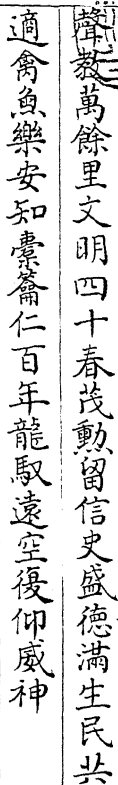 聲教萬餘里文明四十春茂勲留信史盛德滿生民共
適禽魚樂安知橐籥仁百年龍馭遠空復仰威神